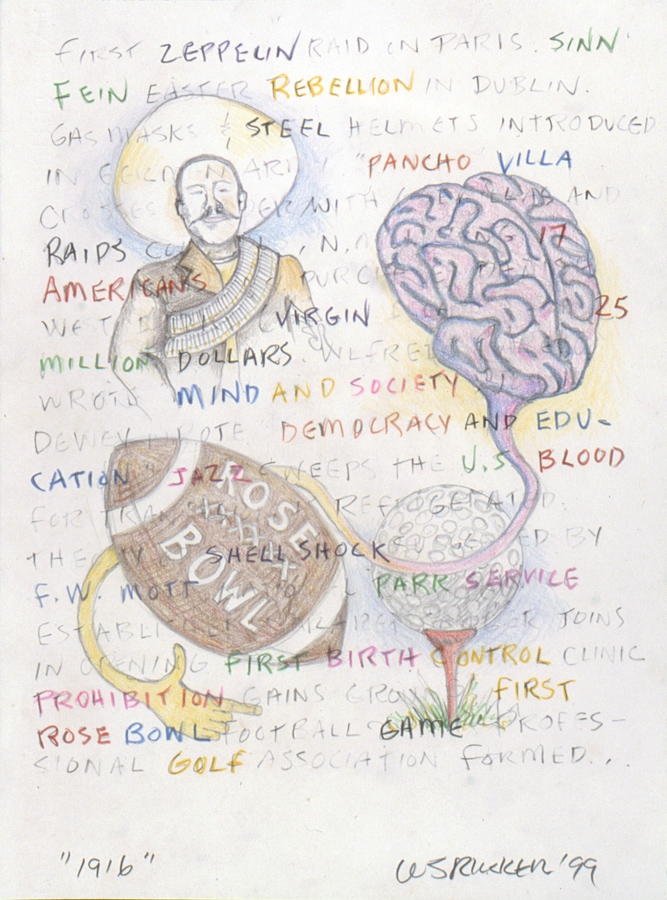 FIRST ZEPPELIN RAID IN PARIS. SINN
FEIN EASTER REBELLION IN DUBLIN.
GAS MASKS & STEEL HELMETS INTRODUCED
IN "PANCHO" VILLA
CROSSES WITH AND
RAIDS , N. 17
AMERICANS
WEST VIRGIN 25
MILLION DOLLARS.
WROTE MIND AND SOCIETY
DEWEY WROTE DEMOCRACY AND EDU-
CATION" JAZZ SWEEPS THE U.S BLOOD
FOR REFRIGERATED.
SHELL SHOCK BY
F.W. MOTT PARR SERVICE
JOINS
IN OPENING FIRST BIRTH CONTROL CLINIC
PROHIBITION GAINS FIRST
ROSE BOWL FOOTBALL GAME PROFES-
SIONAL GOLF ASSOCIATION FORMED...
ROSE
BOWL
"1916"
WSRUKKER '99